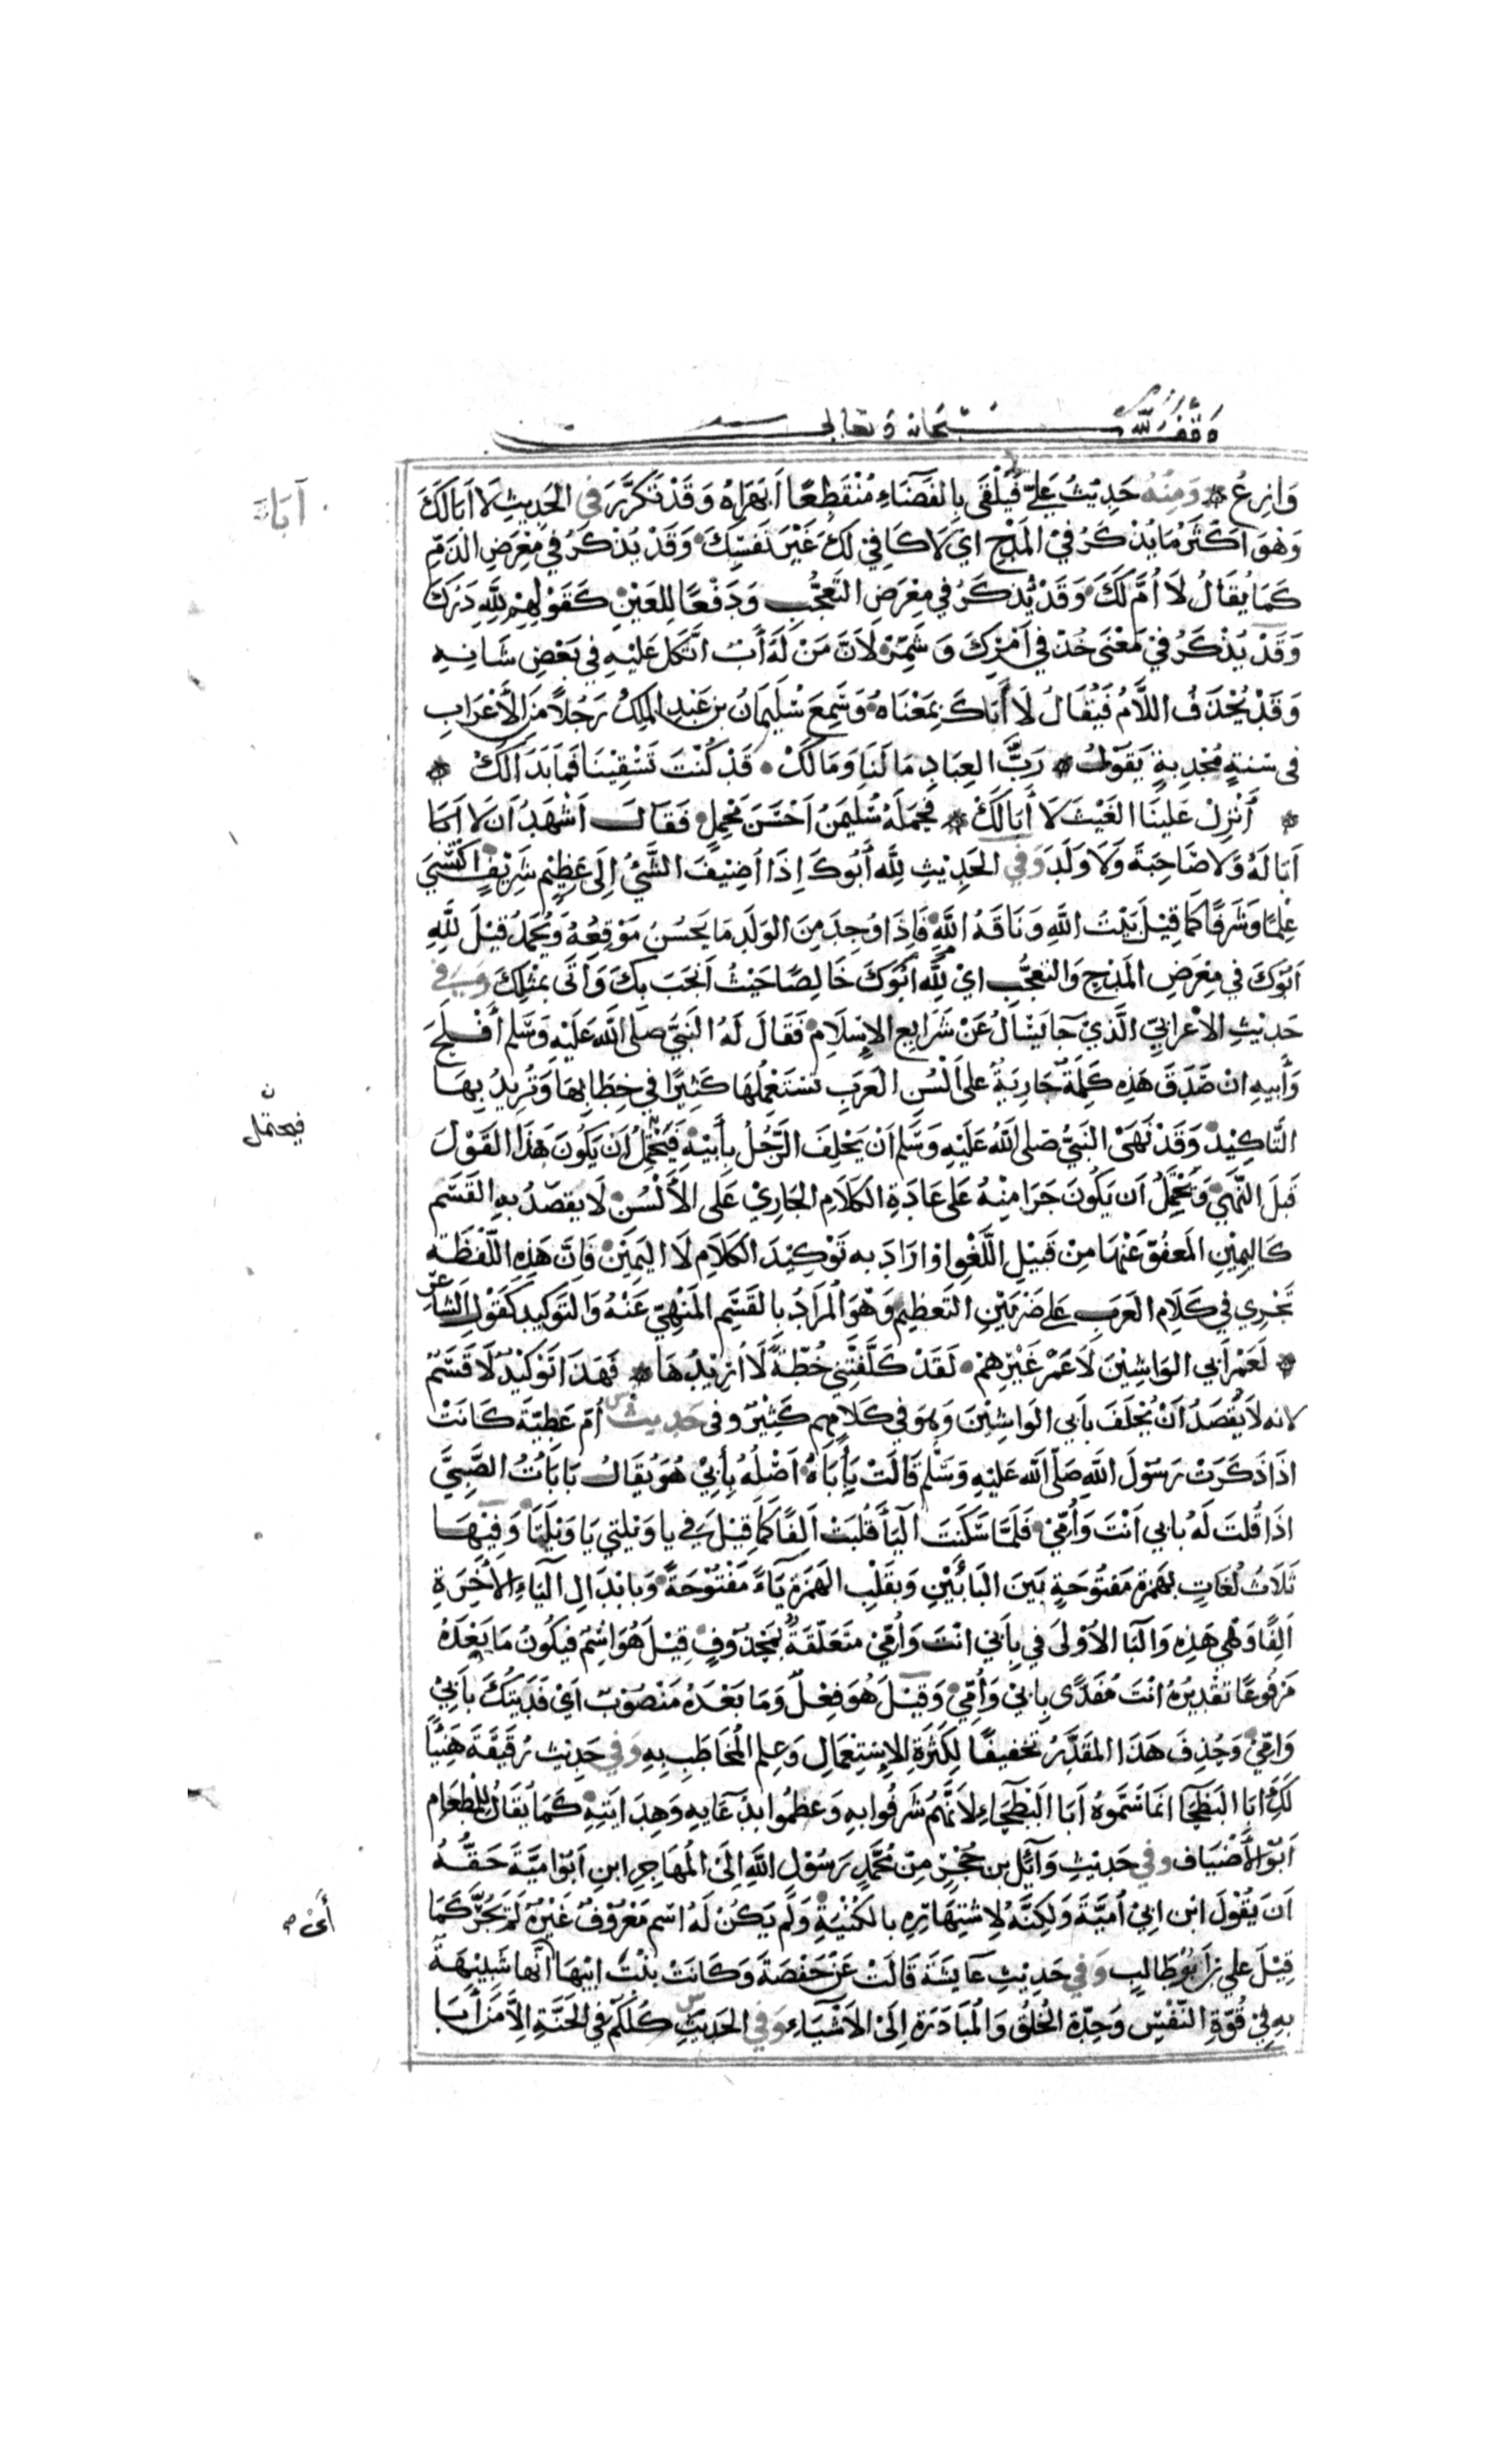 وقف لله سبحانه وتعالى
وَازِعُ * وَمِنْهُ حَدِيْثُ عَلِيٍّ فَيُلْقَى بِالفَضَاءِ مُنْقَطِعًا اَبْهَرَاهُ وَقَدْ تَكَرَّرَ فِي الحَدِيثِ لَا اَبَا لَكَ
اَبَا
وَهُوَ اَكْثَرُ مَا يُذْكَرُ فِيْ المَدْحِ اَيْ لَا كَافِيَ لَكَ غَيْرَ نَفْسِكَ وَقَدْ يُذْكَرُ فِي مَعْرَضِ الذَّمِّ
كَمَا يُقَالُ لَا اُمَّ لَكَ وَقَدْ يُذْكَرُ فِي مَعْرَضِ التَّعَجُّبِ وَدَفْعًا لِلعَيْنِ كَقَوْلِهِمْ لِلّهِ دَرُّكَ
وَقَدْ يُذْكَرُ فِيْ مَعْنَى جُدَّ فِي اَمْرِكَ وَشَمِّرْ لِاَنَّ مَنْ لَهُ أَبٌ اتَّكَلَ عَلَيْهِ فِي بَعْضِ شَانِهِ
وَقَدْ يُحْذَفُ اللَّامُ فَيُقَالُ لَا أَبَاكَ بِمَعْنَاهُ وَسَمِعَ سُلَيْمَانُ بن عَبْدِ المَلِكِ رَجُلًا مِنَ الأَعْرَابِ
فى سَنةٍ مُجْدِبةٍ يَقُوْلُ * رَبَّ العِبَادِ مَا لَنَا وَمَا لَكْ • قَدْ كُنْتَ تَسْقِيْنَا فَمَا بَدَا لَكْ *
* أَنْزِلْ عَلَيْنَا الغَيْثَ لَا أَبَا لَكْ * فَحَمَلَهُ سُلَيْمَنُ اَحْسَنَ مَحْمِلٍ فَقَالَ اَشْهَدُ اَن لَا اَبَا
اَبَا لَهُ وَلَا صَاحِبَةَ وَلَا وَلَدَ وَفِي الحَدِيْثِ لِلّهِ أَبُوكَ اِذَا اُضِيْفَ الشَّيْءُ اِلَى عَظِيْمٍ شَرِيْفٍ اكْتَسَى
عِظَمًا وَشَرَفًا كَمَا قِيْلَ بَيْتُ اللَّهِ وَنَاقَةُ اللَّهِ فَاِذَا وُجِدَ مِنَ الوَلَدِ مَا يَحْسُنُ مَوْقِعُهُ وَيُحْمَدُ قِيْلَ لِلّهِ
اَبُوْكَ فِي مَعْرَضِ المَدْحِ وَالتَّعَجُّبِ اَيْ لِلّهِ اَبُوْكَ خَالِصًا حَيْثُ اَنْجَبَ بِكَ وَأَتَى بِمْثْلِكَ وَفي
حَدِيْثِ الاَعْرابِيِّ الَّذِيْ جَا يَسْأَلُ عَنْ شَرَايِعِ الإِسْلَامِ فَقَالَ لَهُ النَّبِيُّ صَلَّى اللَّه عَلَيْهِ وَسَلَّم أَفْلَحَ
وَأَبِيهِ اِنْ صَدَقَ هَذِهِ كَلِمَةٌ جَارِيَةٌ عَلَى اَلْسُنِ العَرَبِ تَسْتَعْمِلُهَا كَثِيْرًا فِي خِطَابِهَا وَتُرِيدُ بِهَا
التَّاكِيْدَ وَقَدْ نَهَى النَّبِيُّ صَلى اللَّهُ عَلَيْهِ وَسَلَّم اَنْ يَحْلِفَ الرَّجُلُ بِأَبِيْهِ فَيَحْتَمِلُ اَن يَكُونَ هَذَا القَوْلُ
فيحتمل ن
قَبلَ النَّهْيِ وَيَحْتَمِلُ اَن يَكُونَ جَرَا مِنْهُ عَلى عَادَةِ الكَلَامِ الجَارِيْ عَلَى الأَلْسُنِ لَا يقصدُ بِهِ القَسَم
كَاليَمِيْنِ المَعْفُوِّ عَنْهَا مِنْ قَبِيْلِ اللَّغْوِ اوْ ارَادَ به تَوْكِيْدَ الكَلَامِ لَا اليَمِيْنَ فَاِنَّ هَذِهِ اللَّفْظَة
تَجْرِي فِي كَلَامِ العَرَبِ عَلى ضَرْبَيْنِ التَّعظِيمِ وَهُوَ المُرَادُ بِالقَسَمِ المَنْهِيِّ عَنْهُ وَالتَوْكِيدِ كَقَوْلِ الشَّاعِرِ
* لَعَمْرُ أَبِي الوَاشِيْنَ لَا عَمْرُ غَيْرِهِمْ • لَقَدْ كَلَّفَتْنِي خُطَّةً لَا أُرِيْدُهَا * فَهَذَا تَوْكِيْدٌ لَا قَسَمٌ
لانه لَا يُقْصَدُ اَنْ يُحْلَفَ بأَبي الوَاشِيْنَ وَهُوَ فِي كَلَامِهِم كَثِيْرٌ وفى حَدِيث س أُمّ عَطِيَّةَ كَانَتْ
اذَا ذَكَرَتْ رَسُوْلَ اللَّهِ صَلَّى اللَّه عَلَيْهِ وَسَلَّم قَالَتْ بِأَبَاهُ اَصْلُهُ بِأَبِيْ هُوَ يُقَالُ بَابَأْتُ الصَّبِيَّ
اذَا قُلتَ لَهُ بِابي اَنْتَ وَاُمِّيْ فَلَمَّا سَكَنَتِ اليَا قُلِبَتْ اَلِفًا كَمَا قِيْلَ في يا وَيْلتي يَا وَيْلَتَا وَفِيْهَا
ثَلَاثُ لُغَاتٍ بِهَمْزَةٍ مَفْتُوحَةٍ بَيْنَ البَائَيْنِ وَبِقَلْبِ الهَمْزَةِ يَاءً مَفْتُوْحَةً وَبِابْدَالِ اليَاءِ الأَخِرَةِ
اَلِفًا وَهْي هَذِهِ وَالبَا الأُوْلَى فِي بِأَبِيْ انْتَ وَاُمِّيْ مُتَعَلِّقَةٌ بِمَحْذُوْفٍ قِيْلَ هُوَ اسْمٌ فيَكُونُ مَا بَعْدَهُ
مَرْفُوعًا تَقْدِيرُهُ انْتَ مُفَدًّى بِابِيْ وَاُمِّيْ وَقِيْلَ هُوَ فِعْلٌ وَمَا بَعْدَهُ مَنْصُوْبٌ اَيْ فَدَيْتُكَ بِأَبِيْ
وَاُمِّيْ وَحُذِفَ هَذَا المُقَدَّرُ تَخْفيفًا لِكَثْرَةِ الإِسْتِعْمَالِ وَعِلمِ المُخَاطَبِ بِهِ وَفي حَدِيْث رُقَيْقَةَ هَنِيْأً
لَكَ أَبَا البَطْحَا انَمَا سَمَّوهُ اَبَا البَطْحَاءِ لِاَنَّهُمْ شَرُفُوا بِهِ وَعَظمُوا بِدُعَايِهِ وَهِدَايَتِهِ كَمَا يُقَالُ لِلْمِطْعَامِ
اَبُو الأَضْيَاف وفي حَدِيْثِ وَآئِلِ بن حُجْرٍ مِنْ مُحَمَّدٍ رَسُوْلِ اللَّهِ اِلَى المُهَاجِرِ ابنِ اَبُوْ امَيَّةَ حَقُّهُ
اَن يَقُوْلَ ابْن ابِيْ اُمَيَّةَ وَلَكِنَّهُ لِاشْتِهَارِهِ بالكُنْيَةِ وَلَم يَكُنْ لَهُ اسْم مَعْرُوْفٌ غَيْرُهُ لَمْ يُجَرَّ كَمَا
أَىْ صـ
قِيْلَ عَلي بْنُ اَبُوْ طَالِبٍ وَفي حَدِيْثِ عَايِشَةَ قَالَتْ عَنْ حَفْصَةَ وَكَانَتْ بِنْتَ ابِيْهَا اَنَّها شَبِيْهَةٌ
بِهِ فِيْ قُوَّةِ النَّفْسِ وَحِدَّة الخُلُقِ وَالمُبَادَرَةِ اِلَى الاَشْيَاءِ وَفي الحَدِيثِ س كُلُكُمْ فِي الجَنَّةِ اِلَّا مَنْ أَبَا